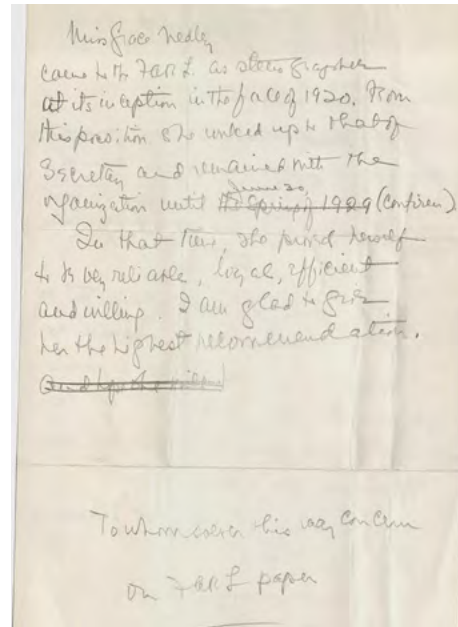 Miss Grace Nedley
came to the FAR L. as stenographer
at its inception in the fall of 1920. From
this position she worked up to that of
Secretary and remained with the
June 30,
organization until the Spring of 1929 (confirm).
In that time, she proved herself
to be very reliable, loyal, efficient
and willing. I am glad to give
her the highest recommendation.
and
To whomsoever this may concern
on FAR L paper